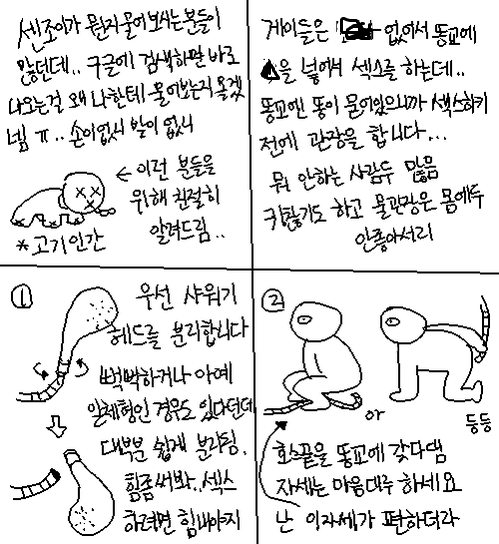 센조이가 뭔지 물어보시는분들이
많던데.. 구글에 검색하면 바로
나오는걸 왜 나한테 물어보는지 몰겠
넴 ㅠ.. 손이없시 발이 없시
← 이런 분들을
위해 친절히
알려드림..
*고기인간
게이들은 없어서 똥꼬에
을 넣어서 섹스를 하는데..
똥꼬엔 똥이 묻어있으니까 섹스하기
전에 관장을 합니다...
뭐 안하는 사람두 많음
귀찮기도 하고 물관장은 몸에두
안좋아서리
①
우선 샤워기
헤드를 분리합니다
뻑뻑하거나 아예
일체형인 경우도 있다던데
대부분 쉽게 분리됨.
힘좀써봐.. 섹스
하려면 힘내야지
②
or
등등
호스끝을 똥꼬에 갖다댐
자세는 마음대루 하세요
난 이자세가 편하더라